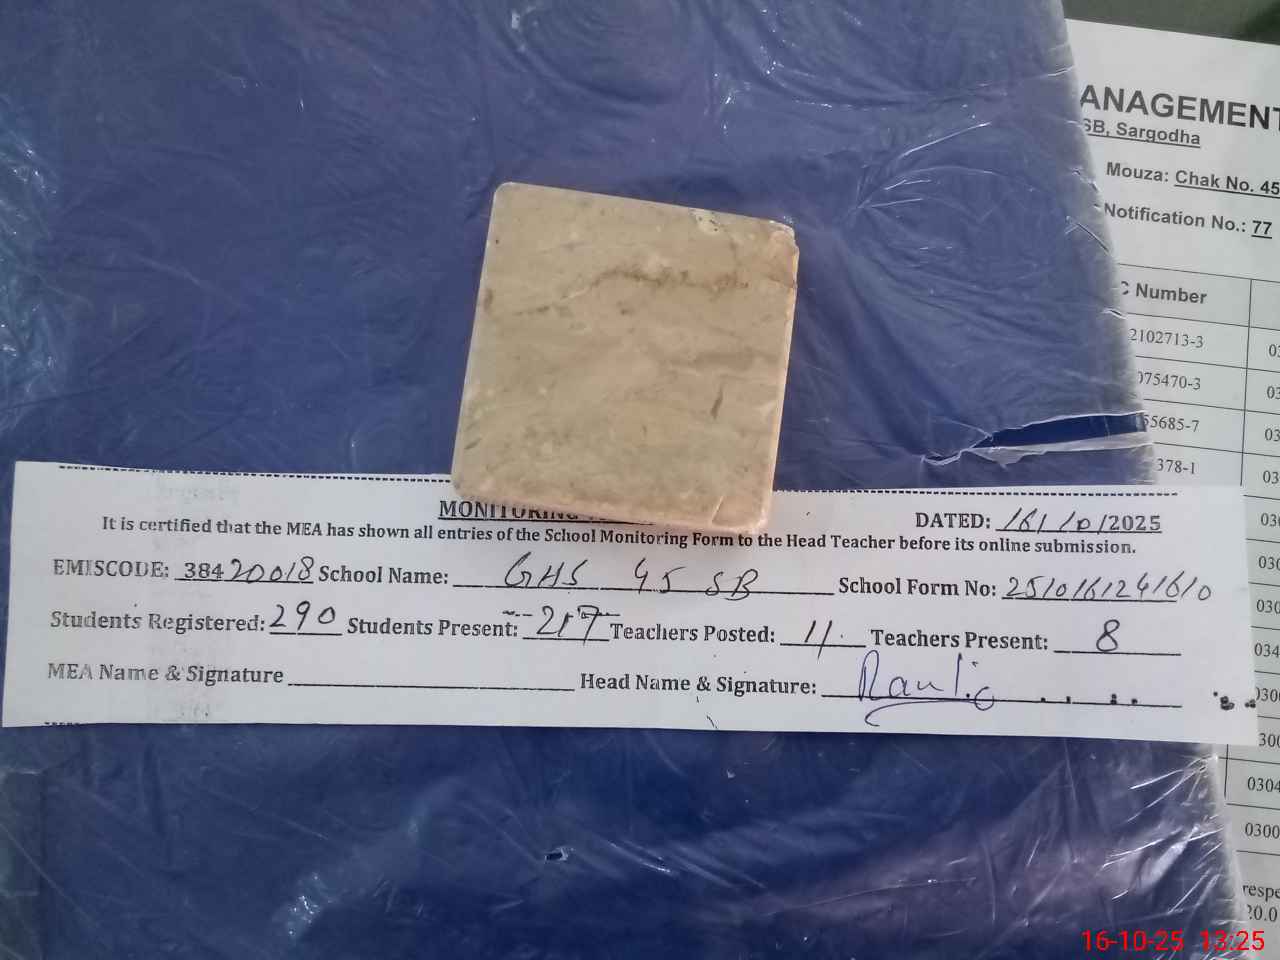 ANAGEMENT
SB, Sargodha
Mouza: Chak No. 45
Notification No.: 77
C Number
2102713-3
075470-3
55685-7
378-1
MONITORING
DATED: 16/10/2025
It is certified that the MEA has shown all entries of the School Monitoring Form to the Head Teacher before its online submission.
EMISCODE: 38420018 School Name: GHS 45 SB School Form No: 2510161241610
Students Registered: 290 Students Present: 217 Teachers Posted: 11 Teachers Present: 8
MEA Name & Signature Head Name & Signature:
034
300
0304
0300
respe
20.0
16-10-25 13:25